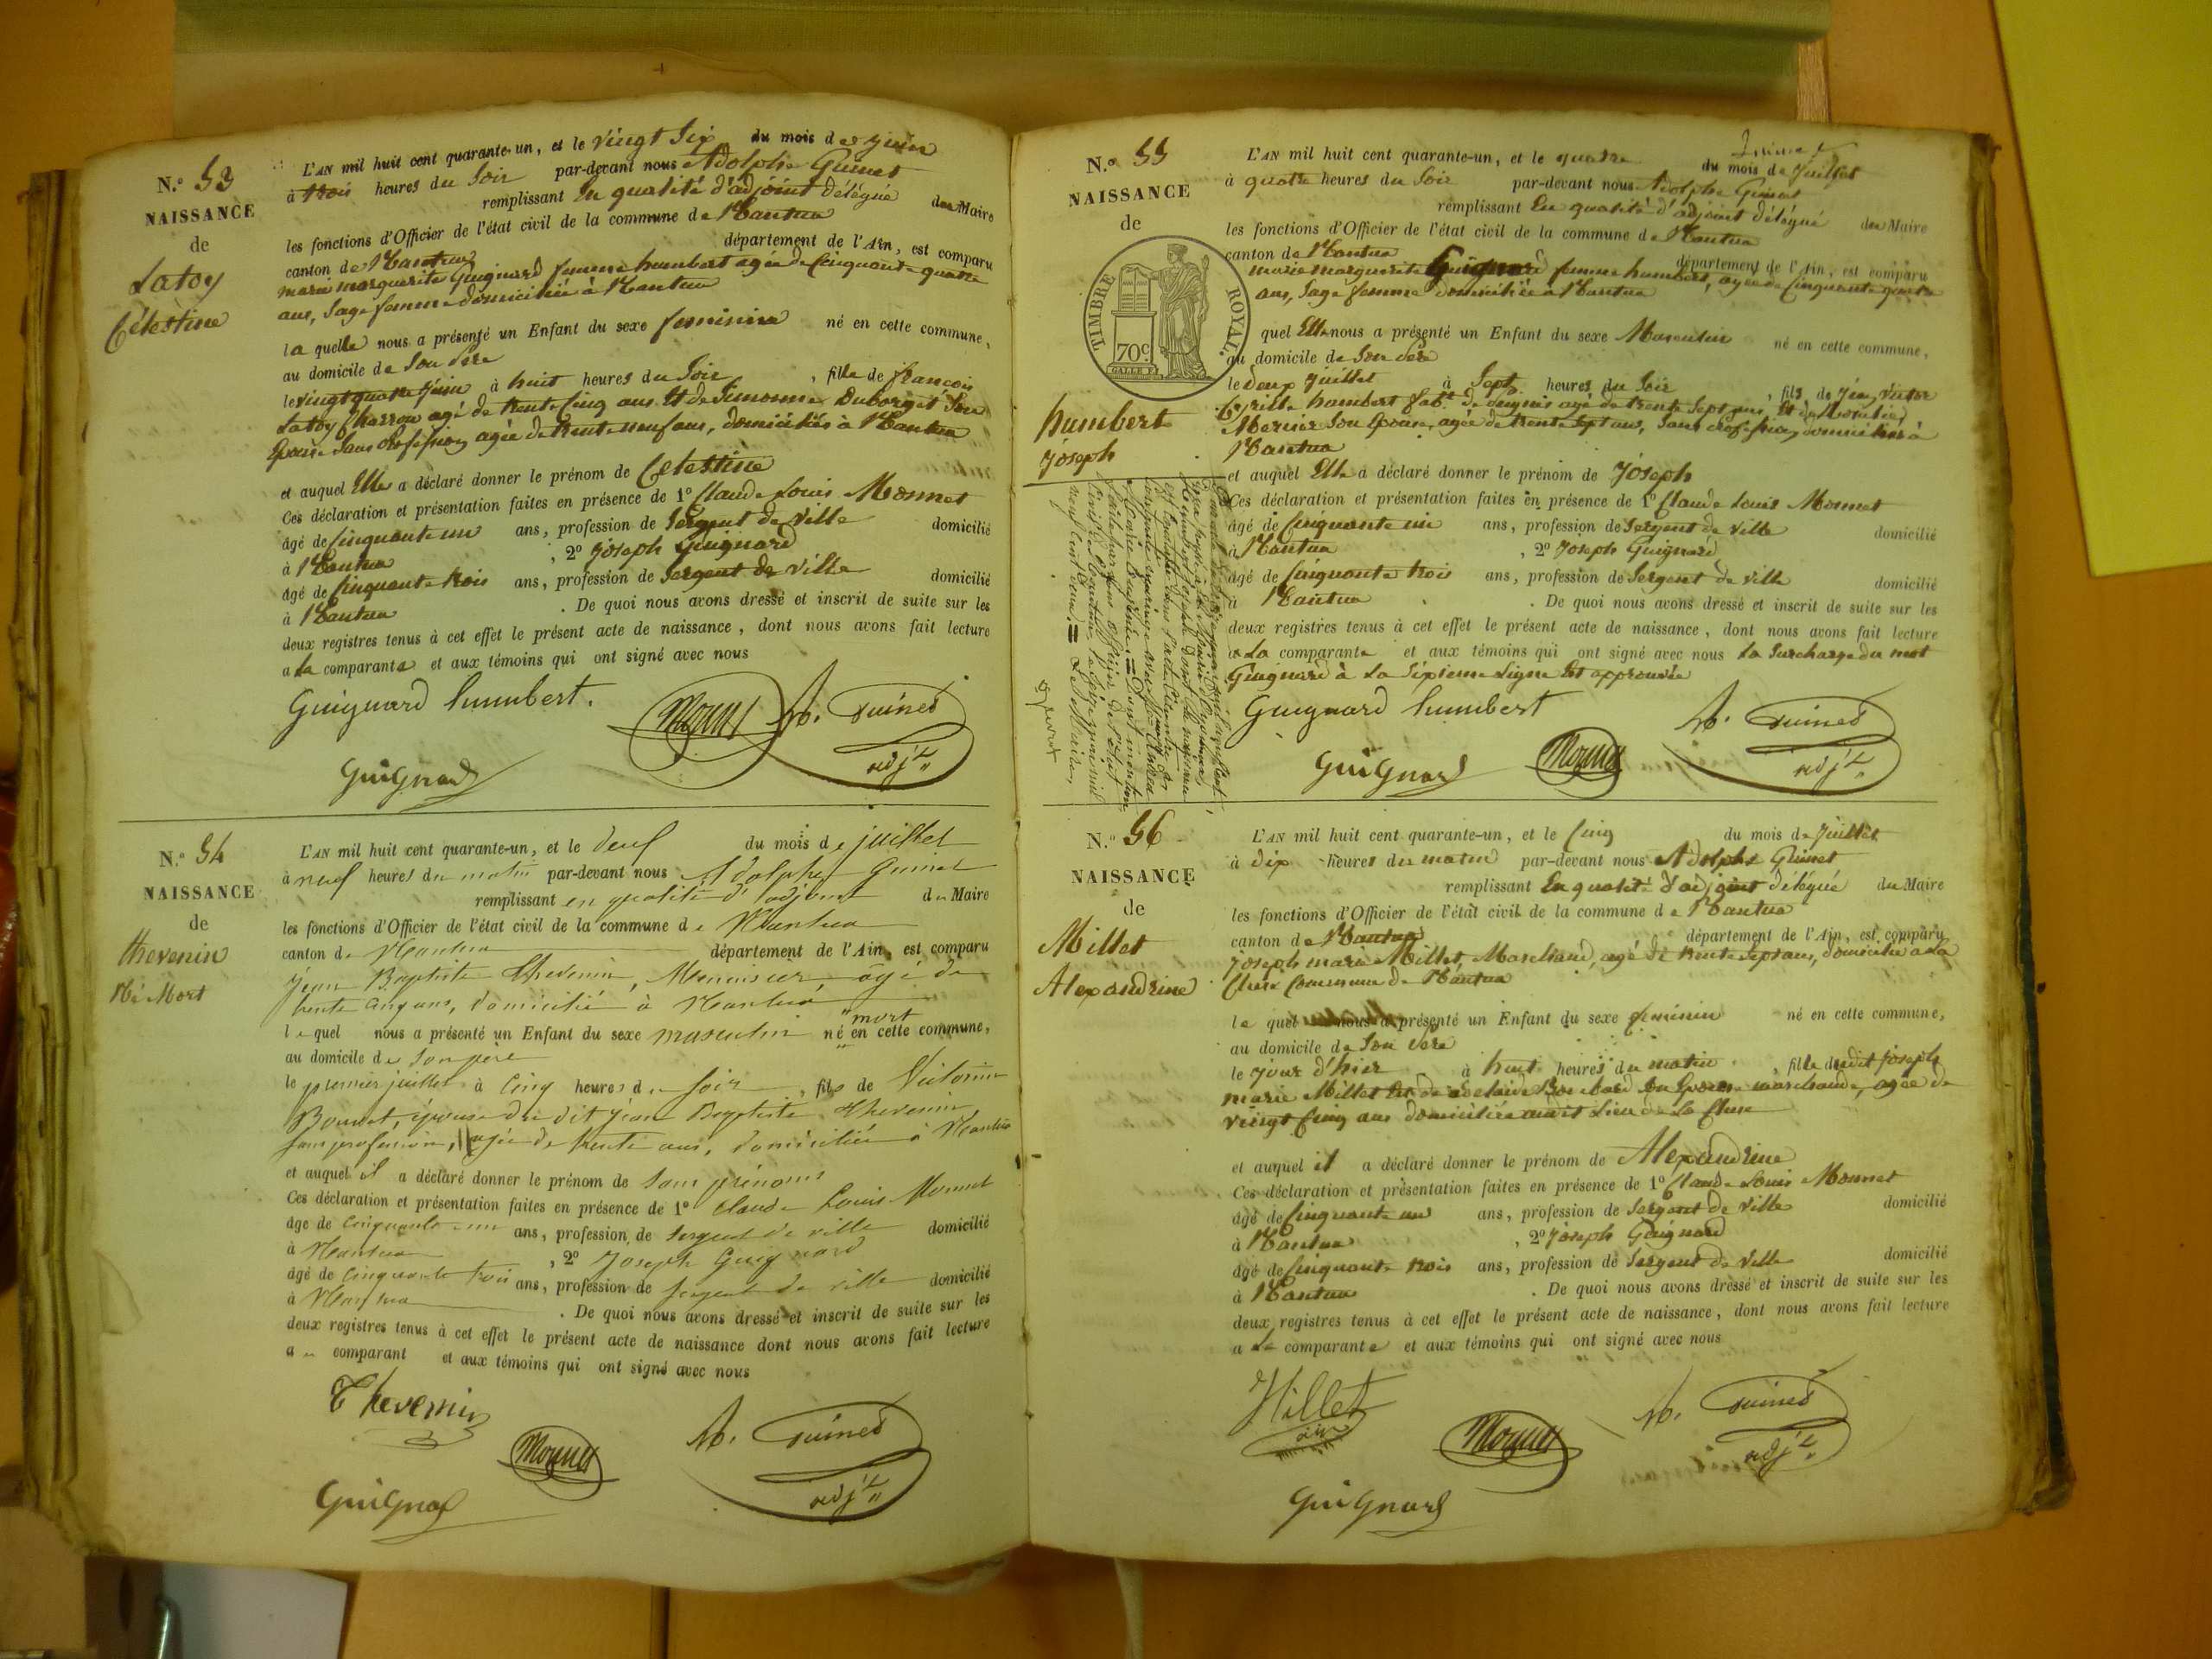 N.º 53
NAISSANCE
de
Latoy
Célestine
L'AN mil huit cent quarante-un, et le vingt six du mois de juin
à trois heures du soir par-devant nous Adolphe Guinet
remplissant En qualité d'adjoint délégué du Maire
les fonctions d'Officier de l'état civil de la commune de Nantua
canton de Nantua département de l'Ain, est comparu
marie marguerite Guignard femme humbert agée de Cinquante quatre
ans, Sage femme domiciliée à Nantua
la quelle nous a présenté un Enfant du sexe feminin né en cette commune,
au domicile de Son Père
le vingt quatre juin à huit heures du Soir, fille de françois
Latoy Charron agé de trente Cinq ans Et de Simonne Duborget Son
Epouse Sans Profession agée de trente neuf ans, domiciliés à Nantua
et auquel Elle a déclaré donner le prénom de Célestine
Ces déclaration et présentation faites en présence de 1º Claude Louis Monnet
âgé de Cinquante un ans, profession de Sergent de ville domicilié
à Nantua, 2º Joseph Guignard
âgé de Cinquante trois ans, profession de Sergent de ville domicilié
à Nantua. De quoi nous avons dressé et inscrit de suite sur les
deux registres tenus à cet effet le présent acte de naissance, dont nous avons fait lecture
a La comparante et aux témoins qui ont signé avec nous
Guignard humbert.
Monnet
A. Guinet
adj.t
Guignard
N.º 54
NAISSANCE
de
thevenin
Né Mort
L'AN mil huit cent quarante-un, et le deux du mois de juillet
à neuf heures du matin par-devant nous Adolphe Guinet
remplissant en qualité d'adjoint du Maire
les fonctions d'Officier de l'état civil de la commune de Nantua
canton de Nantua département de l'Ain, est comparu
jean Baptiste thevenin, Menuisier, agé de
trente cinq ans, domicilié à Nantua
mort
le quel nous a présenté un Enfant du sexe masculin né en cette commune,
au domicile de son père
le premier juillet à cinq heures du soir, fils de Victorine
Bonnet, épouse du dit jean Baptiste thevenin
sans profession, agée de trente ans, domiciliée à Nantua
et auquel il a déclaré donner le prénom de sans prénoms
Ces déclaration et présentation faites en présence de 1º Claude Louis Monnet
âge de cinquante un ans, profession de sergent de ville domicilié
à Nantua, 2º Joseph Guignard
âgé de cinquante trois ans, profession de sergent de ville domicilié
à Nantua. De quoi nous avons dressé et inscrit de suite sur les
deux registres tenus à cet effet le présent acte de naissance dont nous avons fait lecture
au comparant et aux témoins qui ont signé avec nous
Thevenin
Monnet
A. Guinet
adj.t
Guignard
N.º 55
NAISSANCE
de
TIMBRE ROYAL.
70c
humbert
Joseph
L'AN mil huit cent quarante-un, et le quatre du mois de Juillet
à quatre heures du Soir par-devant nous Adolphe Guinet
remplissant En qualité d'adjoint délégué du Maire
les fonctions d'Officier de l'état civil de la commune de Nantua
canton de Nantua département de l'Ain, est comparu
marie marguerite Guignard femme humbert, agée de Cinquante quatre
ans, Sage femme domiciliée à Nantua
quel Elle nous a présenté un Enfant du sexe Masculin né en cette commune,
au domicile de Son Père
le deux Juillet à Sept heures du Soir, fils de Jean Victor
Cyrille humbert fab.t de peignes agé de trente Sept ans, Et de
Mernier Son Epouse, agée de trente Sept ans, Sans profession, domiciliés à
Nantua
et auquel Elle a déclaré donner le prénom de Joseph
Ces déclaration et présentation faites en présence de 1º Claude Louis Monnet
âgé de Cinquante un ans, profession de Sergent de ville domicilié
à Nantua, 2º Joseph Guignard
âgé de Cinquante trois ans, profession de Sergent de ville domicilié
à Nantua. De quoi nous avons dressé et inscrit de suite sur les
deux registres tenus à cet effet le présent acte de naissance, dont nous avons fait lecture
a La comparante et aux témoins qui ont signé avec nous La Surcharge du mot
Guignard à La Sixième Ligne Est approuvée
Guignard humbert
Guignard
Monnet
A. Guinet
adj.t
N.º 56
NAISSANCE
de
Millet
Alexandrine
L'AN mil huit cent quarante-un, et le Cinq du mois de Juillet
à dix heures du matin par-devant nous Adolphe Guinet
remplissant En qualité d'adjoint délégué du Maire
les fonctions d'Officier de l'état civil de la commune de Nantua
canton de Nantua département de l'Ain, est comparu
Joseph marie Millet, Marchand, agé de trente Sept ans, domicilié à La
Cluse Commune de Nantua
le quel nous a présenté un Enfant du sexe feminin né en cette commune,
au domicile de Son Père
le jour d'hier à huit heures du matin, fille dudit joseph
marie Millet Et de adelaide Bouchard Son Epouse marchande, agée de
vingt Cinq ans domiciliée audit Lieu de La Cluse
et auquel il a déclaré donner le prénom de Alexandrine
Ces déclaration et présentation faites en présence de 1º Claude Louis Monnet
âgé de Cinquante un ans, profession de Sergent de Ville domicilié
à Nantua, 2º Joseph Guignard
âgé de Cinquante trois ans, profession de Sergent de Ville domicilié
à Nantua. De quoi nous avons dressé et inscrit de suite sur les
deux registres tenus à cet effet le présent acte de naissance, dont nous avons fait lecture
a Le comparante et aux témoins qui ont signé avec nous
Millet
Monnet
A. Guinet
adj.t
Guignard